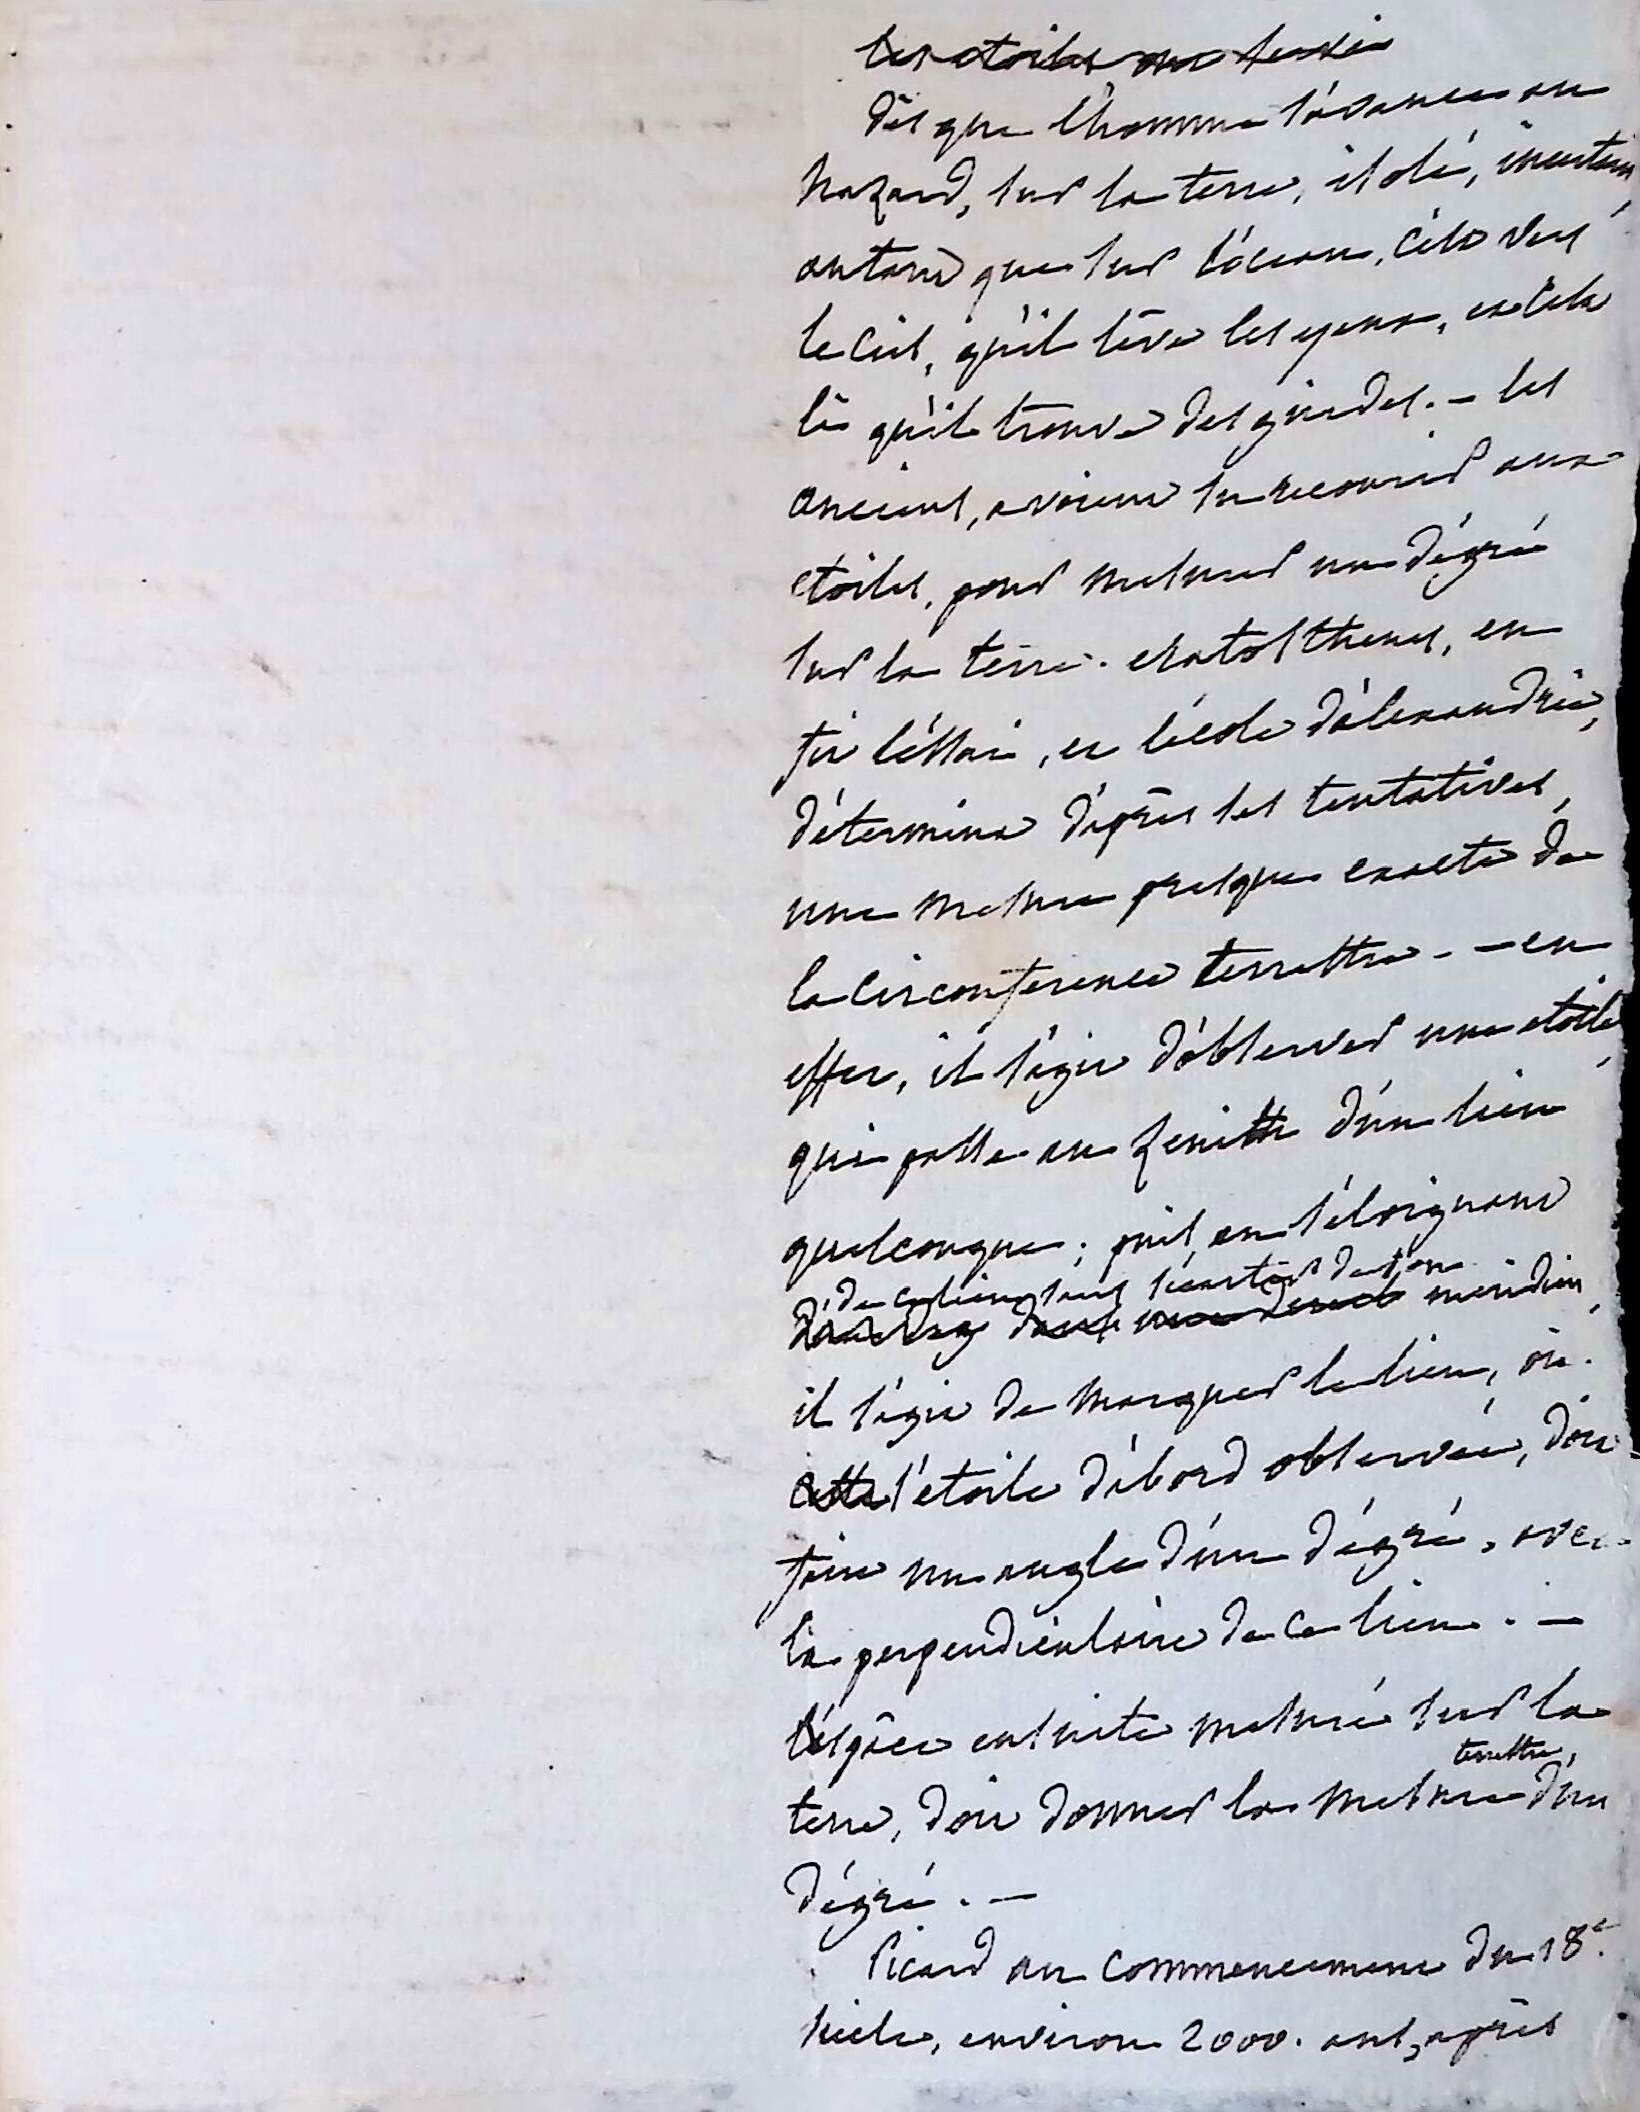 les etoiles ont servi
Dès que l'homme s'avance au
hazard, sur la terre, isolé, incertain,
autant que sur l'océan, c'est vers
le ciel, qu'il lève les yeux, et c'est
là qu'il trouve des guides. – les
anciens, avaient su recourir aux
etoiles, pour mesurer un dégré
sur la terre. eratosthenes, en
fit l'éssai, et l'école d'alexandrie,
détermina d'après ses tentatives,
une mesure presque exacte de
la circonference terrestre. – en
effet, il s'agit d'observer une etoile
qui passe au zenith d'un lieu
quelconque; puis, en s'éloignant
de ce lieu sans s'écarter de son
meridien,
il s'agit de marquer le lieu, où
cette l'etoile d'abord observée, doit
faire un angle d'un dégré, avec
la perpendiculaire de ce lieu. –
l'éspâce ensuite mesuré sur la
terrestre,
terre, doit donner la mesure d'un
dégré. –
Picard au commencement du 18e.
siècle, environ 2000. ans, après